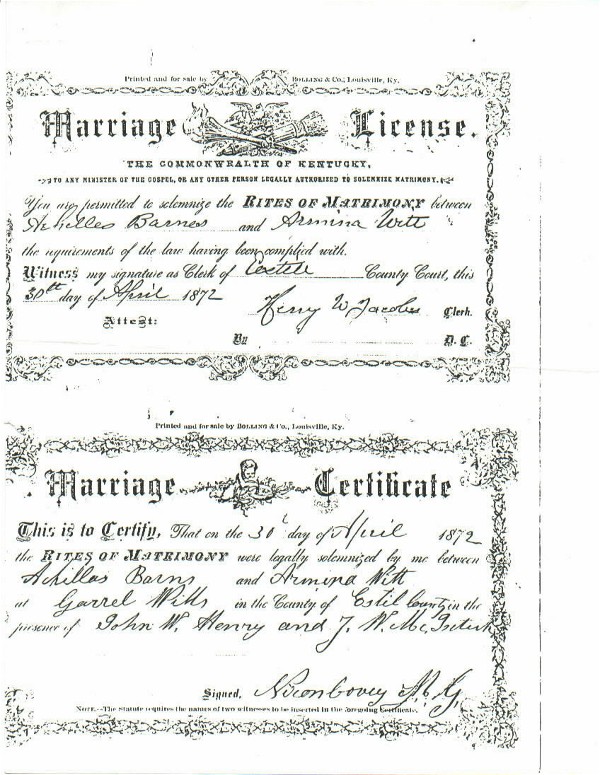 Printed and for sale by BOLLING & Co., Louisville, Ky.
Marriage License.
THE COMMONWEALTH OF KENTUCKY,
TO ANY MINISTER OF THE GOSPEL, OR ANY OTHER PERSON LEGALLY AUTHORISED TO SOLEMNISE MATRIMONY,
You are permitted to solemnize the RITES OF MATRIMONY between
Achilles Barnes and Armina Witt
the requirements of the law having been complied with.
Witness my signature as Clerk of County Court, this
30th day of April 1872
Henry W Jacobs Clerk.
Attest:
By D. C.
Printed and for sale by BOLLING & Co., Louisville, Ky.
Marriage Certificate
This is to Certify, That on the 30 day of April 1872
the RITES OF MATRIMONY were legally solemnized by me between
Achillas Barns and Armina Witt
at Garrel Witts in the County of Estil County in the
presence of John W. Henry and J. W. Mc
Signed,
NOTE.—The statute requires the names of two witnesses to be inserted in the foregoing Certificate.